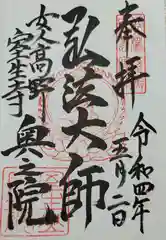 奉拝
令和四年
五月二日
弘法大師
女人高野
室生寺
奥之院